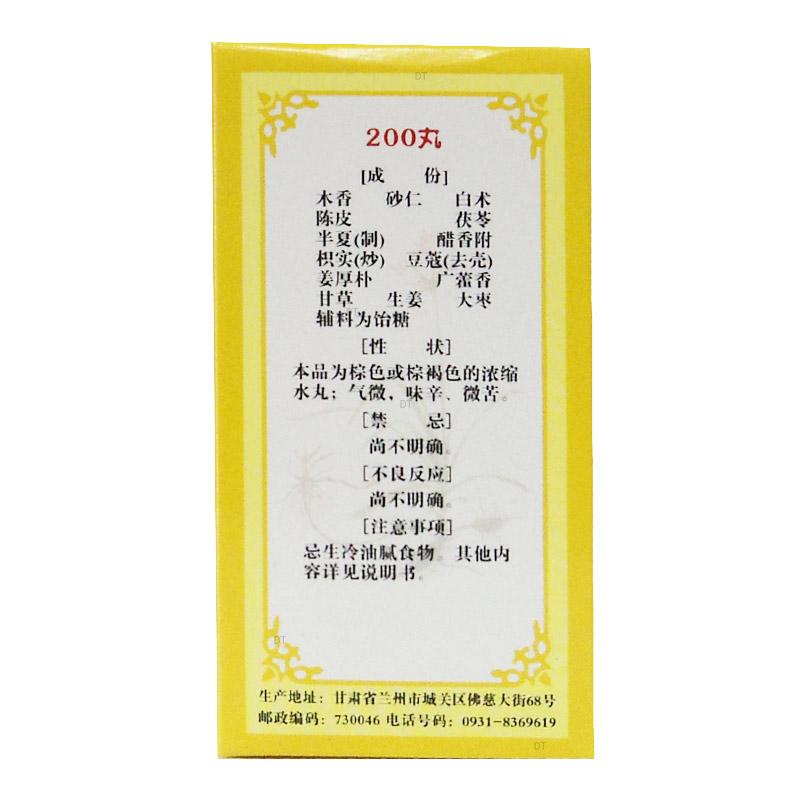 DT
200丸
[成 份]
木香 砂仁 白术
陈皮 茯苓
半夏(制) 醋香附
枳实(炒) 豆蔻(去壳)
姜厚朴 广藿香
甘草 生姜 大枣
辅料为饴糖
[性 状]
本品为棕色或棕褐色的浓缩
水丸；气微，味辛、微苦。
DT
[禁 忌]
尚不明确。
[不良反应]
尚不明确。
[注意事项]
忌生冷油腻食物。其他内
容详见说明书。
DT
生产地址：甘肃省兰州市城关区佛慈大街68号
邮政编码：730046 电话号码：0931-8369619
DT